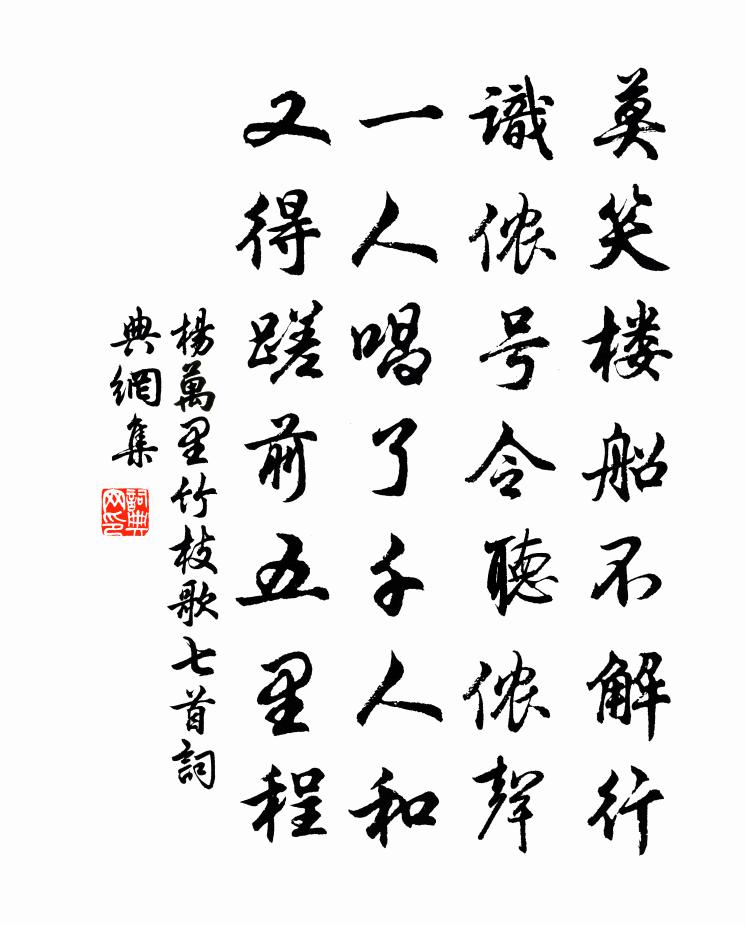 莫笑楼船不解行
識侬号令聽侬聲
一人唱了千人和
又得蹉前五里程
楊萬里竹枝歌七首詞
典網集
詞典
网印